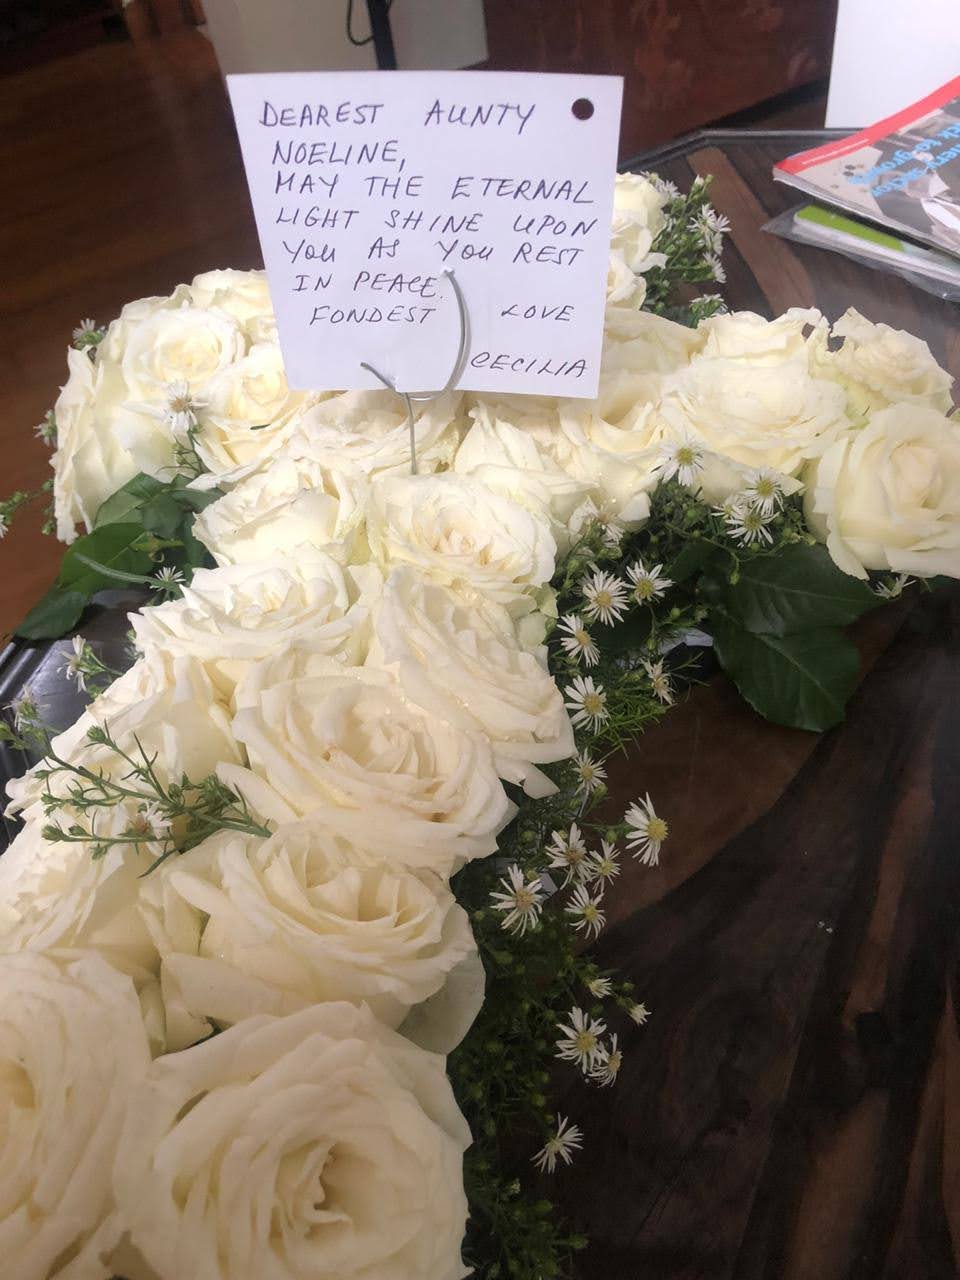 DEAREST AUNTY
NOELINE,
MAY THE ETERNAL
LIGHT SHINE UPON
YOU AS YOU REST
IN PEACE.
FONDEST LOVE
CECILIA